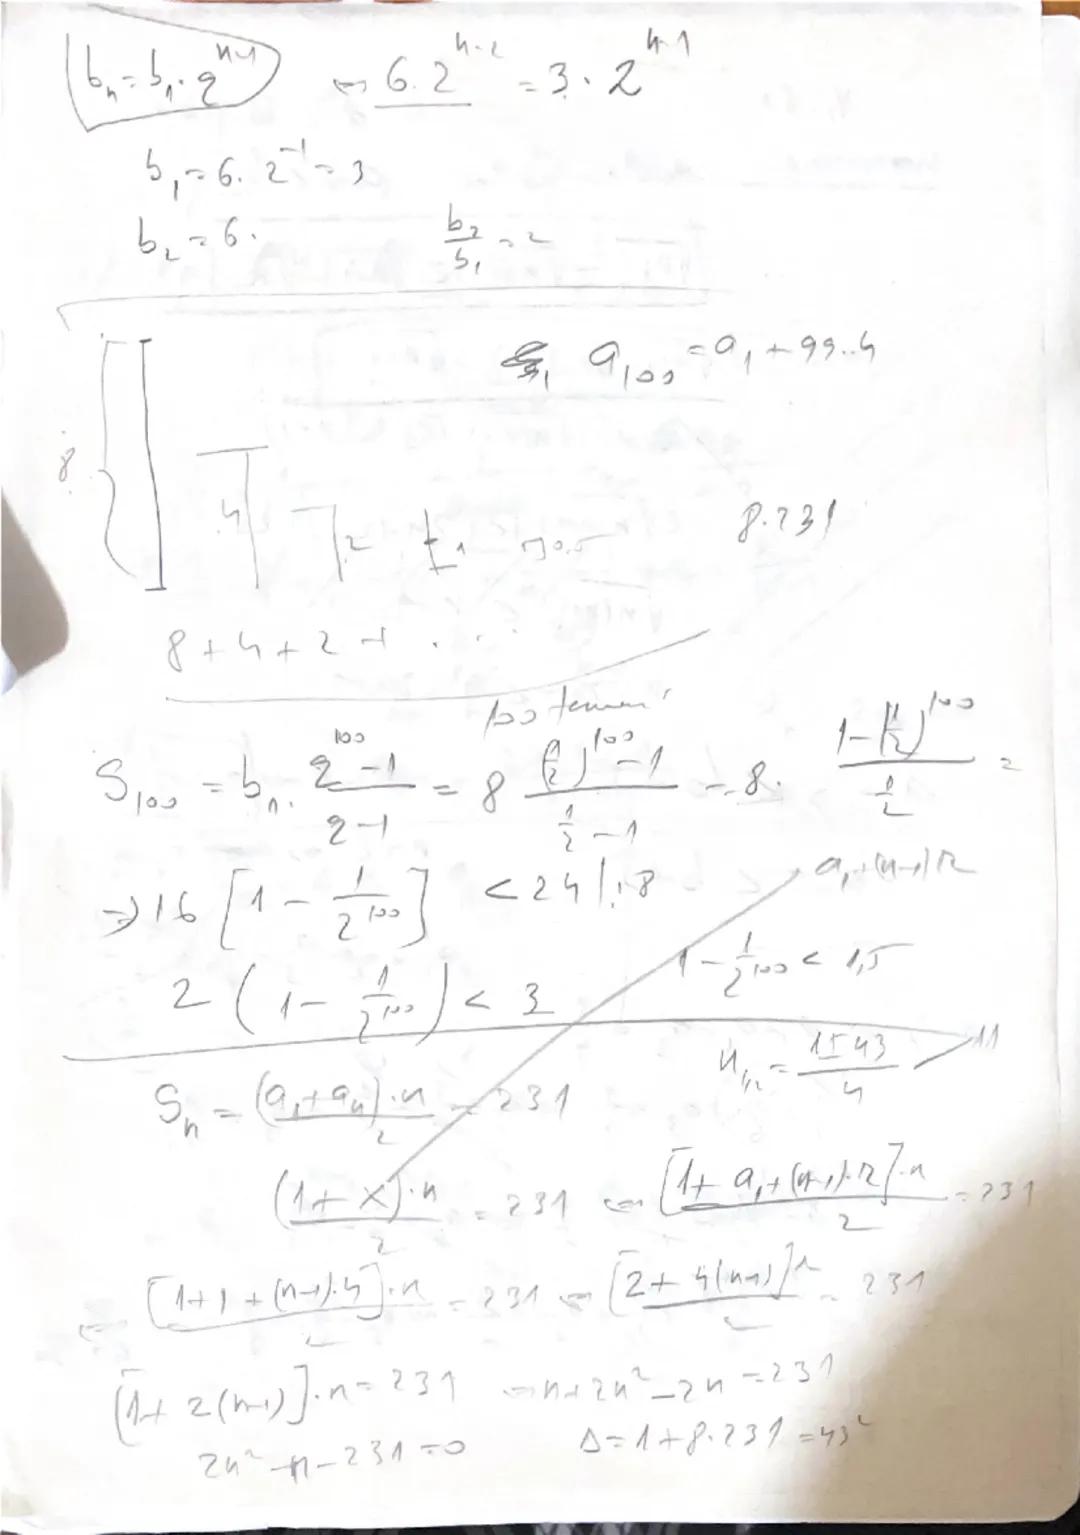 bₙ = b₁ · q^(n-1) ⇔ 6 · 2^(n-2) = 3 · 2^(n-1)
b₁ = 6 · 2^(-1) = 3
b₂ = 6 · b₂/b₁ = 2
a₁₀₀ = a₁ + 99 · 4
8 4 2 1 0.5
8 · 231
8 + 4 + 2 + . . .
100 termeni
S₁₀₀ = b₁ · (q^100 - 1)/(q - 1) = 8 ((1/2)^100 - 1)/(1/2 - 1) = 8 · (1 - (1/2)^100)/(1/2) =
⇒ 16 [1 - 1/2^100] < 24 |:8
a₁ + (n-1)r
2 (1 - 1/2^100) < 3
1 - 1/2^100 < 1,5
n₁,₂ = (1 ± 43)/4 11
Sₙ = (a₁ + aₙ) · n / 2 = 231
(1 + x) · n / 2 = 231 ⇔ [1 + a₁ + (n-1) · r] · n / 2 = 231
⇔ [1 + 1 + (n-1) · 4] · n / 2 = 231 ⇔ [2 + 4(n-1)] n / 2 = 231
[1 + 2(n-1)] · n = 231 ⇔ n + 2n² - 2n = 231
2n² - n - 231 = 0 Δ = 1 + 8 · 231 = 43²